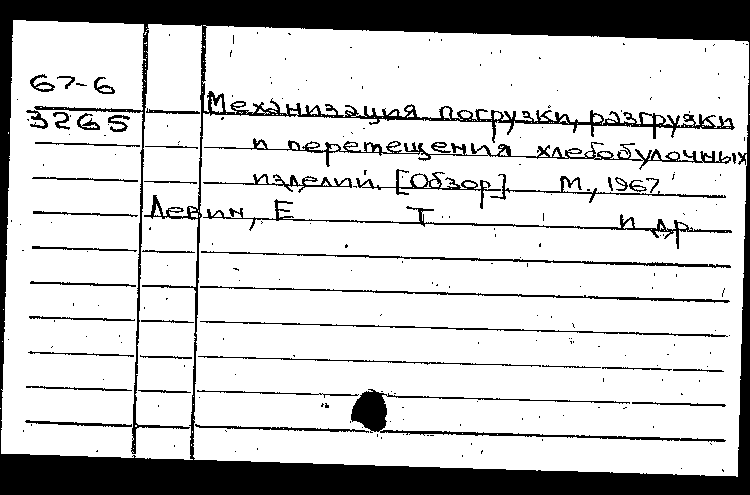 67-6
3265
Механизация погрузки, разгрузки
и перемещения хлебобулочных
изделий. [Обзор]. М., 1967.
Левин, Е Т и др